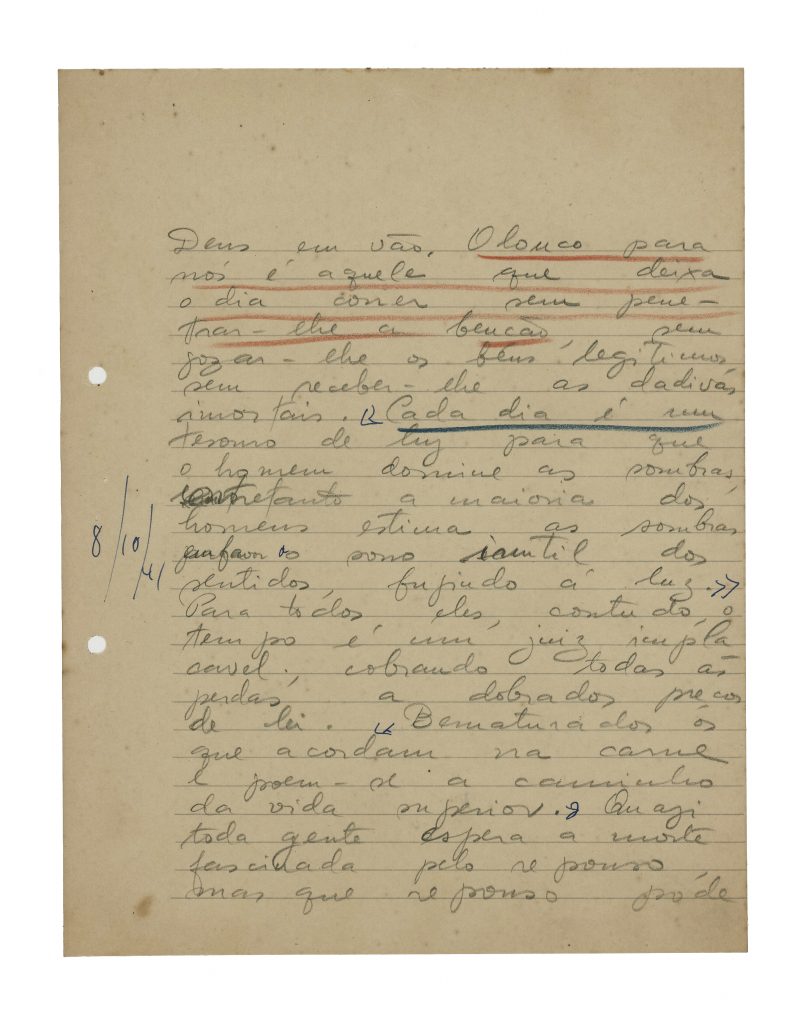 Deus em vão. O louco para
nós é aquele que deixa
o dia correr sem pene-
trar-lhe a bencão sem
gozar-lhe os béns legitimos
sem receber-lhe as dadivas
imortais. « Cada dia é um
tesouro de luz para que
o homem domine as sombras,
entretanto a maioria dos
homens estima as sombras
em favor do sono inutil dos
sentidos, fujindo á luz. »
8/10/41
Para todos eles, contudo, o
tempo é um juiz impla
cavel, cobrando todas as
perdas a dobrados precos
de lei. « Bematurados ós
que acordam na carne
e poem-se a caminho
da vida superior. » Quazi
toda gente espera a morte
fascinada pelo repouso,
mas que repouso póde